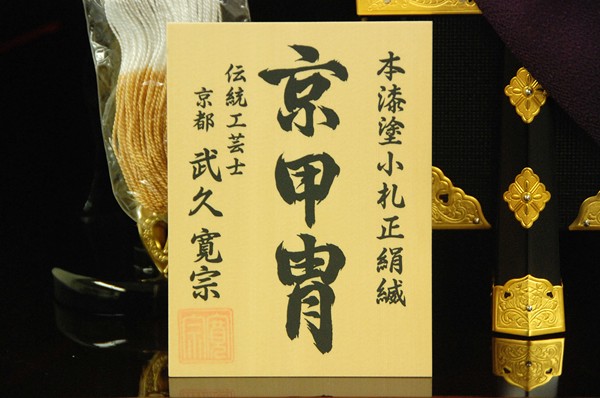 本漆塗小札正絹縅
京甲冑
伝統工芸士
京都 武久寛宗